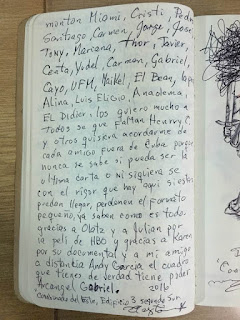 monton Miami, Cristi, Pedro
Santiago, Carmen, Jorge, José
Tony, Mariana, Thor, Javier,
Ceata, Yudel, Carmen, Gabriel,
Cayo, UFM, Maikel, El Bean,
Alina, Luis Eligio, Anadelma,
EL Didier, los quiero mucho a
todos se que faltan Henrry C.
y otros quisiera acordarme de
cada amigo fuera de Cuba porque
nunca se sabe si pueda ser la
ultima carta o ni siquiera se
con el rigor que hay aqui si estas
puedan llegar, perdonen el formato
pequeño, ya saben como es todo.
gracias a Obtz y a Julian por
la peli de HBO y gracias a Karen
por su documental y a mi amigo
a distancia Andy Garcia el cuadro
que tienes de verdad tiene poder
Arcangel Gabriel. 2016
Combinado del Este, Edificio 3 segundo Sur